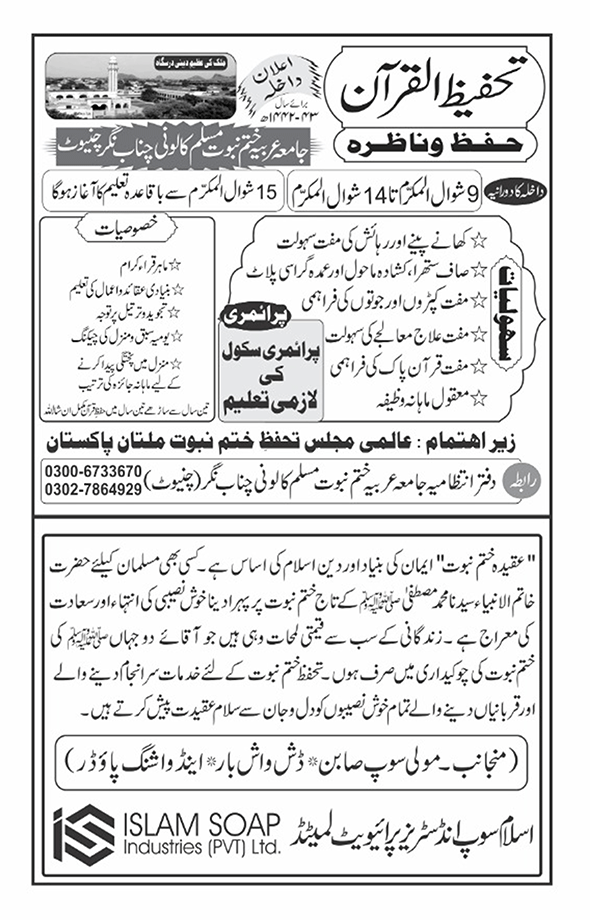 تحفیظ القرآن
حفظ و ناظرہ
اعلان داخلہ
برائے سال
۱۴۴۲-۴۳ھ
ملک کی عظیم دینی درسگاہ
جامعہ عربیہ ختم نبوت مسلم کالونی چناب نگر چنیوٹ
داخلہ کا دورانیہ
9 شوال المکرم تا 14 شوال المکرم
15 شوال المکرم سے باقاعدہ تعلیم کا آغاز ہوگا
سہولیات
☆ کھانے پینے اور رہائش کی مفت سہولت
☆ صاف ستھرا، کشادہ ماحول اور عمدہ گراسی پلاٹ
☆ مفت کپڑوں اور جوتوں کی فراہمی
☆ مفت علاج معالجے کی سہولت
☆ مفت قرآن پاک کی فراہمی
☆ معقول ماہانہ وظیفہ
پرائمری
پرائمری سکول
کی
لازمی تعلیم
خصوصیات
☆ ماہر قراء کرام
☆ بنیادی عقائد و اعمال کی تعلیم
☆ تجوید و ترتیل پر توجہ
☆ یومیہ سبق و منزل کی چیکنگ
☆ منزل میں پختگی پیدا کرنے
کے لیے ماہانہ جائزہ کی ترتیب
تین سال سے ساڑھے تین سال میں حفظ قرآن مکمل ان شاءاللہ
زیر اہتمام : عالمی مجلس تحفظ ختم نبوت ملتان پاکستان
رابطہ
دفتر انتظامیہ جامعہ عربیہ ختم نبوت مسلم کالونی چناب نگر (چنیوٹ)
0300-6733670
0302-7864929
"عقیدہ ختم نبوت" ایمان کی بنیاد اور دین اسلام کی اساس ہے۔ کسی بھی مسلمان کیلئے حضرت
خاتم الانبیاء سیدنا محمد مصطفیٰ ﷺ کے تاج ختم نبوت پر پہرا دینا خوش نصیبی کی انتہاء اور سعادت
کی معراج ہے۔ زندگانی کے سب سے قیمتی لمحات وہی ہیں جو آقائے دو جہاں ﷺ کی
ختم نبوت کی چوکیداری میں صرف ہوں۔ تحفظ ختم نبوت کے لئے خدمات سرانجام دینے والے
اور قربانیاں دینے والے تمام خوش نصیبوں کو دل و جان سے سلام عقیدت پیش کرتے ہیں۔
(منجانب۔ مولی سوپ صابن* ڈش واش بار* اینڈ واشنگ پاؤڈر)
اسلام سوپ انڈسٹریز پرائیویٹ لمیٹڈ
ISLAM SOAP
Industries (PVT) Ltd.